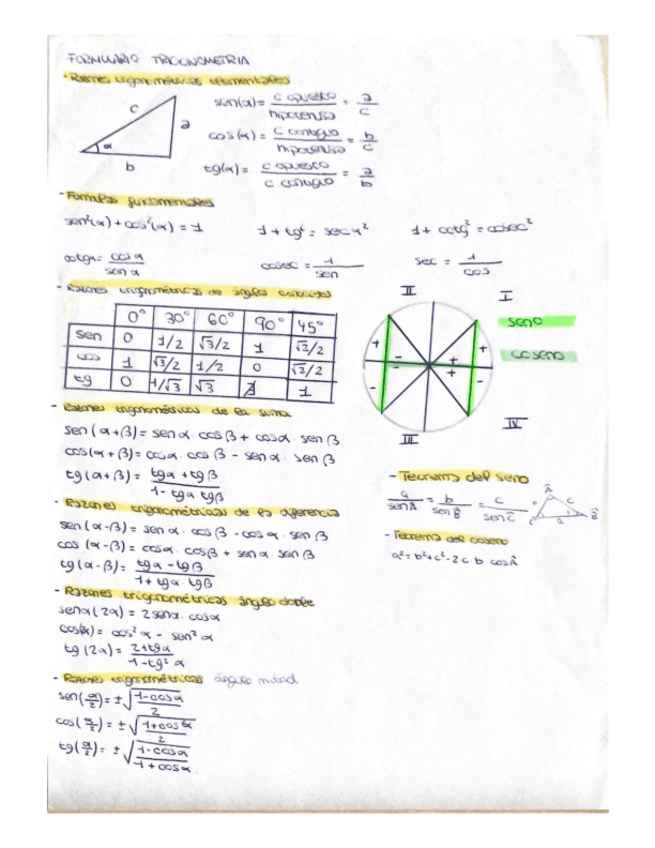 FORMULARIO TRIGONOMETRIA
- Razones trigonométricas elementales
c a α b
sen(α) = c opuesto / hipotenusa = a / c
cos(α) = c contiguo / hipotenusa = b / c
tg(α) = c opuesto / c contiguo = a / b
- Formulas fundamentales
sen²(α) + cos²(α) = 1
1 + tg² = sec α²
1 + cotg² = cosec²
cotgα = cosα / sen α
cosec = 1 / sen
sec = 1 / cos
- Razones trigonométricas de ángulos conocidos
0° 30° 60° 90° 45°
sen 0 1/2 √3/2 1 √2/2
cos 1 √3/2 1/2 0 √2/2
tg 0 1/√3 √3 ∄ 1
II I
+ - + +
- - + -
III IV
seno
coseno
- Razones trigonométricas de la suma
sen (α+β) = sen α · cos β + cosα · sen β
cos(α+β) = cosα · cosβ - senα · sen β
tg (α+β) = tgα + tgβ / 1 - tgα tgβ
- Razones trigonométricas de la diferencia
sen (α-β) = sen α · cosβ - cosα · sen β
cos (α-β) = cosα · cosβ + sen α · sen β
tg (α-β) = tgα - tgβ / 1 + tgα · tgβ
- Razones trigonométricas ángulo doble
senα (2α) = 2 senα · cosα
cos(α) = cos² α - sen² α
tg (2α) = 2+tgα / 1 - tg² α
- Razones trigonométricas ángulo mitad
sen(α/2) = ±√(1 - cosα / 2)
cos(α/2) = ±√(1 + cosα / 2)
tg(α/2) = ±√(1 - cosα / 1 + cosα)
- Teorema del seno
a / sen Â = b / sen B̂ = c / sen Ĉ
Â c B̂ a Ĉ
- Teorema del coseno
a² = b² + c² - 2 c b cosÂ